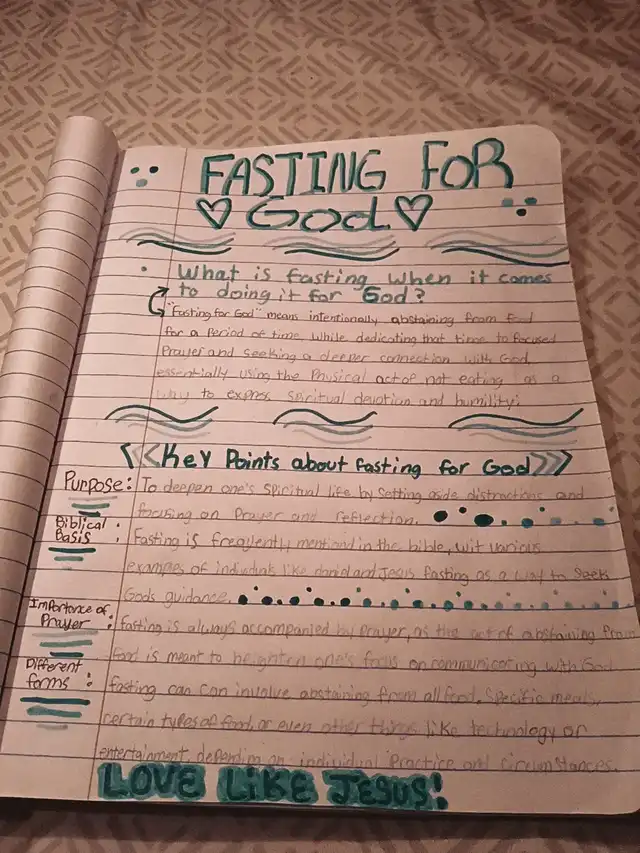 FASTING FOR
God
What is fasting when it comes
to doing it for God?
"Fasting for God" means intentionally abstaining from food
for a period of time, while dedicating that time to focused
Prayer and seeking a deeper connection with God,
essentially using the Physical act of not eating as a
way to express Spiritual devotion and humility:
Key Points about fasting for God
Purpose: To deepen one's spiritual life by setting aside distractions and
focusing on Prayer and reflection.
Biblical Basis: Fasting is frequently mentioned in the bible, wit various
examples of individuals like daniel and Jesus fasting as a way to seek
Gods guidance.
Importance of Prayer: fasting is always accompanied by prayer, as the act of abstaining from
food is meant to heighten one's focus on communicating with God
Different forms: fasting can can involve abstaining from all food. Specific meals,
certain types of food, or even other things like technology or
entertainment, dependin on individual Practice and circumstances.
LOVE LIKE JESUS!